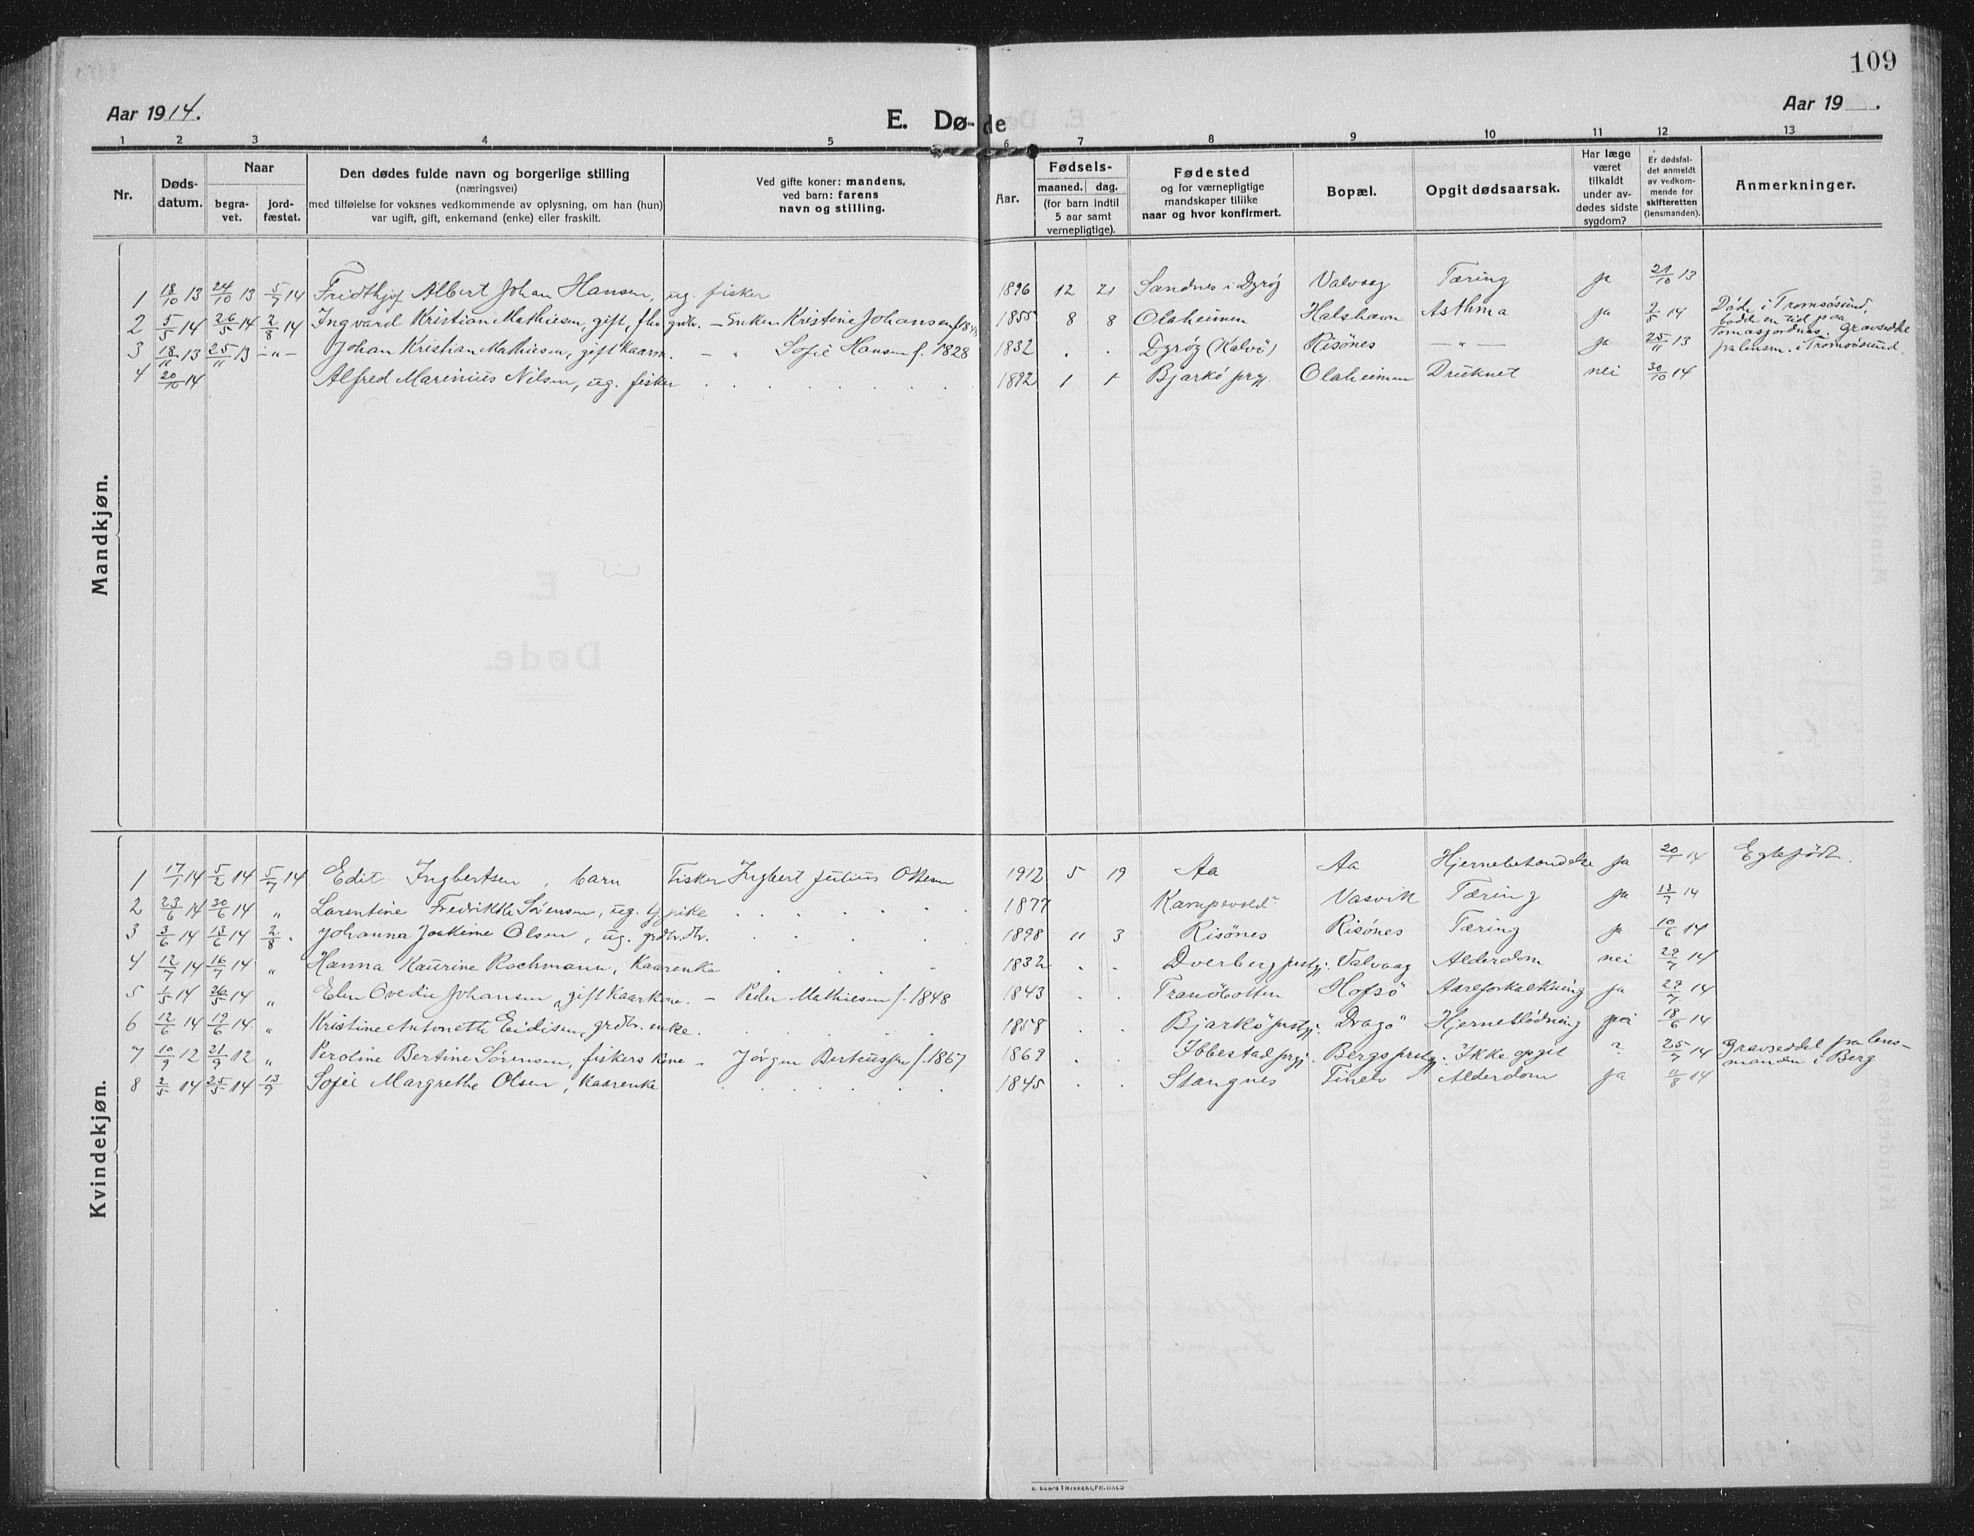 109
Aar 1914.
E. Dø-de
Aar 19 .
1 2 3 4 5 6 7 8 9 10 11 12 13
Nr.
Døds-
datum.
Naar
begra-
vet.
jord-
fæstet.
Den dødes fulde navn og borgerlige stilling
(næringsvei)
med tilføielse for voksnes vedkommende av oplysning, om han (hun)
var ugift, gift, enkemand (enke) eller fraskilt.
Ved gifte koner: mandens,
ved barn: farens
navn og stilling.
Aar.
Fødsels-
maaned. dag.
(for barn indtil
5 aar samt
vernepligtige).
Fødested
og for værnepligtige
mandskaper tillike
naar og hvor konfirmert.
Bopæl.
Opgit dødsaarsak.
Har læge
været
tilkaldt
under av-
dødes sidste
sygdom?
Er dødsfal-
det anmeldt
av vedkom-
mende for
skifteretten
(lensmanden).
Anmerkninger.
Mandkjøn.
1 18/10 13 24/10 13 5/7 14 Fridthjof Albert Johan Hansen, ug. fisker 1896 12 21 Sandnes i Dyrøy Valvaag Tæring ja 21/10 13
2 5/5 14 26/5 14 2/8 14 Ingvard Kristian Mathiesen, gift, grdbr. – Enken Kristine Johansen 1855 8 8 Olaheimen Halshavn Asthma ja 14 Død i Tromsøsund,
bodde en tid paa
Tomasjordnes. Gravseddel
fra lensm. i Tromsøsund.
3 18/11 13 25/11 13 –„– Johan Kristian Mathiesen, gift Kaarm. – „ Sofie Hansen f. 1828 1832 . . Dyrøy (Kalvø) Risönes –„– ja 25/11 13
4 20/10 14 Alfred Marenius Nilsen, ug. fisker 1892 1 1 Bjarkö prgj. Olaheimen Druknet nei 30/10 14
Kvindekjøn.
1 17/1 14 5/2 14 5/7 14 Edit Ingbertsen, barn Fisker Ingbert Julius Ottesen 1912 5 19 Aa Aa Hjernebetændelse ja 20/1 14 Egtefødt.
2 23/6 14 30/6 14 „ Larentine Fredrikke Sörensen, ug. tj. pike 1877 Kampevold Vasvik Tæring ja 13/7 14
3 3/6 14 13/6 14 2/8 . Johanna Joakime Olsen, ug. grdbr.dtr. 1898 11 3 Risönes Risönes Tæring ja 10/6 14
4 12/7 14 16/7 14 „ Hanna Kaurine Rochmann, Kaarenke 1832 . . Dverberg prstgj. Valvaag Alderdom nei 29/7 14
5 1/5 14 26/5 14 „ Elen Ovedie Johansen, gift Kaarkone. – Peder Mathiesen f. 1848 1843 . . Tranöbotten Hofsö Aareforkalkning ja 29/7 14
6 12/6 14 19/6 14 „ Kristine Antonette Eidisen, grdbr. enke. 1858 . . Bjarkö prstgj. Dragö Hjerneblödning 18/6 14
7 10/9 12 21/9 12 „ Peroline Bertine Sörensen, fiskers kone – Jörgen Berteussen f. 1867 1869 . Ibbestad prgj. Bergs prstgj. Ikke opgit ? 25/7 14 Gravseddel fra lens-
manden i Berg
8 2/5 14 25/5 14 13/9 Sofie Margrethe Olsen, Kaarenke 1845 . . Stangnes Finelv Alderdom ja 11/8 14